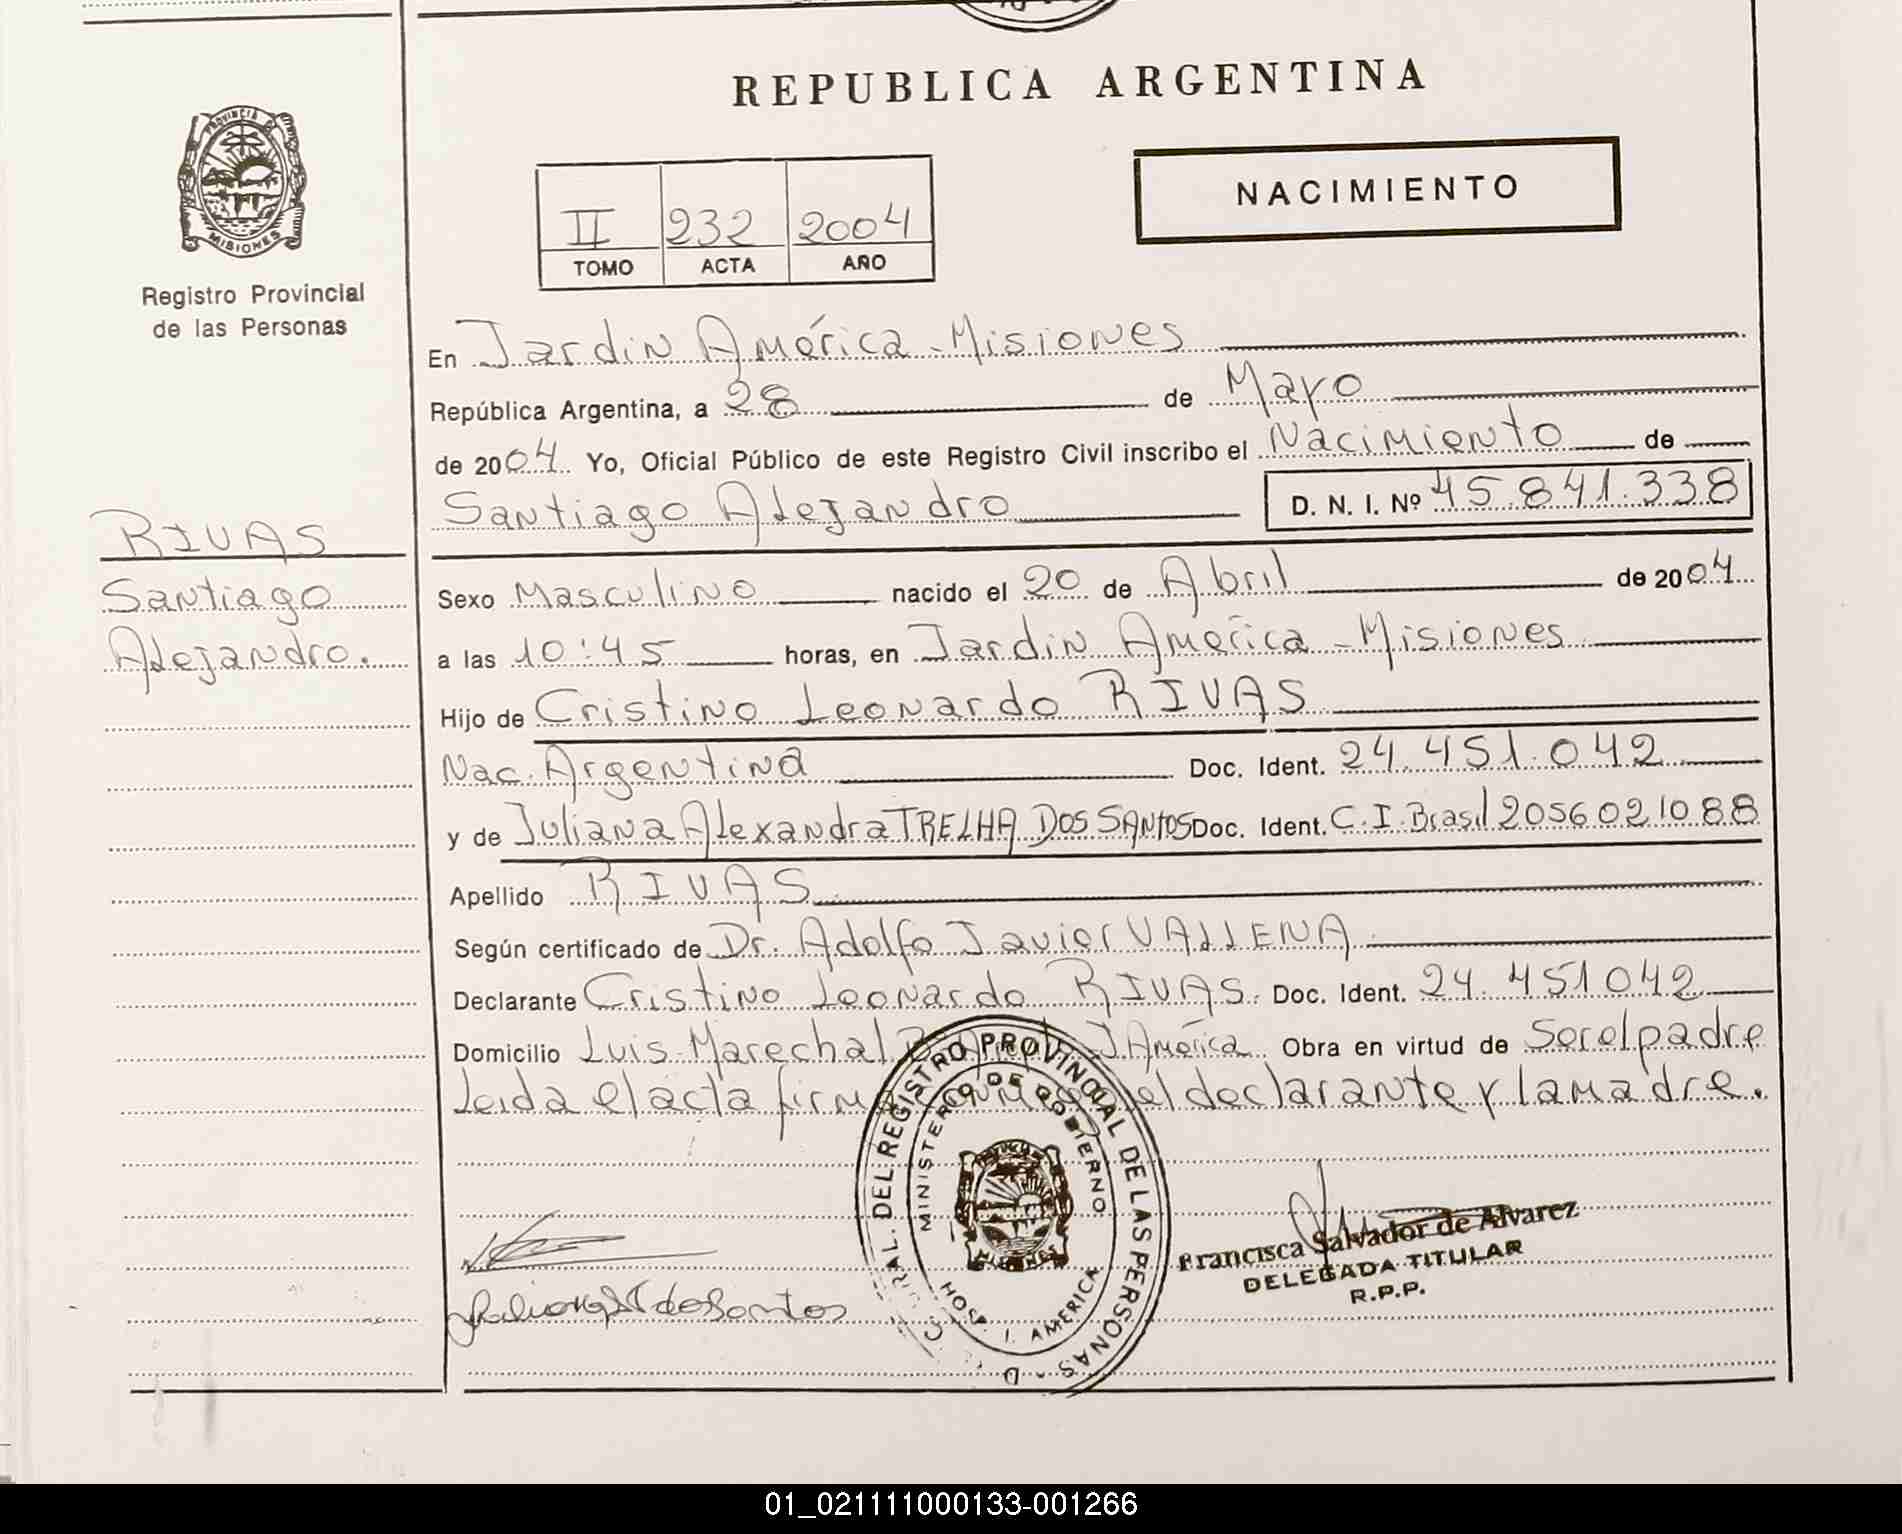 REPUBLICA ARGENTINA
PROVINCIA DE
MISIONES
Registro Provincial
de las Personas
NACIMIENTO
II 232 2004
TOMO ACTA AÑO
En Jardin América - Misiones
República Argentina, a 28 de Mayo
de 2004 Yo, Oficial Público de este Registro Civil inscribo el Nacimiento de
Santiago Alejandro D. N. I. Nº 45.841.338
RIVAS
Santiago
Alejandro.
Sexo Masculino nacido el 20 de Abril de 2004
a las 10:45 horas, en Jardin América - Misiones
Hijo de Cristino Leonardo RIVAS
Nac. Argentina Doc. Ident. 24.451.042
y de Juliana Alexandra TRELHA DOS SANTOS Doc. Ident. C.I. Brasil 2056021088
Apellido RIVAS
Según certificado de Dr. Adolfo Javier VALLENA
Declarante Cristino Leonardo RIVAS. Doc. Ident. 24.451042
Domicilio Luis Marechal J. América Obra en virtud de Ser el padre
Leida el acta el declarante y la madre.
DEL REGISTRO PROVINCIAL DE LAS PERSONAS
MINISTERIO DE GOBIERNO
HOSP. J. AMERICA
Francisca Salvador de Alvarez
DELEGADA TITULAR
R.P.P.
01_021111000133-001266